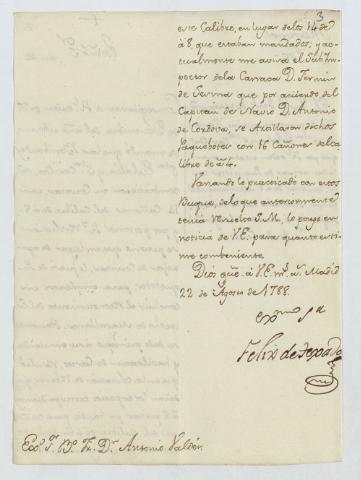 3
este Calibre, en lugar de los 14 de
á 8, que estaban mandados; y ac-
tualmente me avisa el Sub Ins-
pector de la Carraca D. Fermin
de Sesma que por acuerdo del
Capitan de Navio D. Antonio
de Cordova, se Artillaran dichos
Paquebotes con 16 Cañones del ca-
libre de á 4.
Variando lo practicado con estos
Buques, de lo que anteriormente
tenia resuelto S. M. lo pongo en
noticia de V. E. para quanto esti-
me combeniente.
Dios gue. á V. E. ms. as. Madrid
22 de Agosto de 1788.
Exmo. Sor.
Felix de Texada
Exo. Sr. Bo. Fr. Dn. Antonio Valdés.